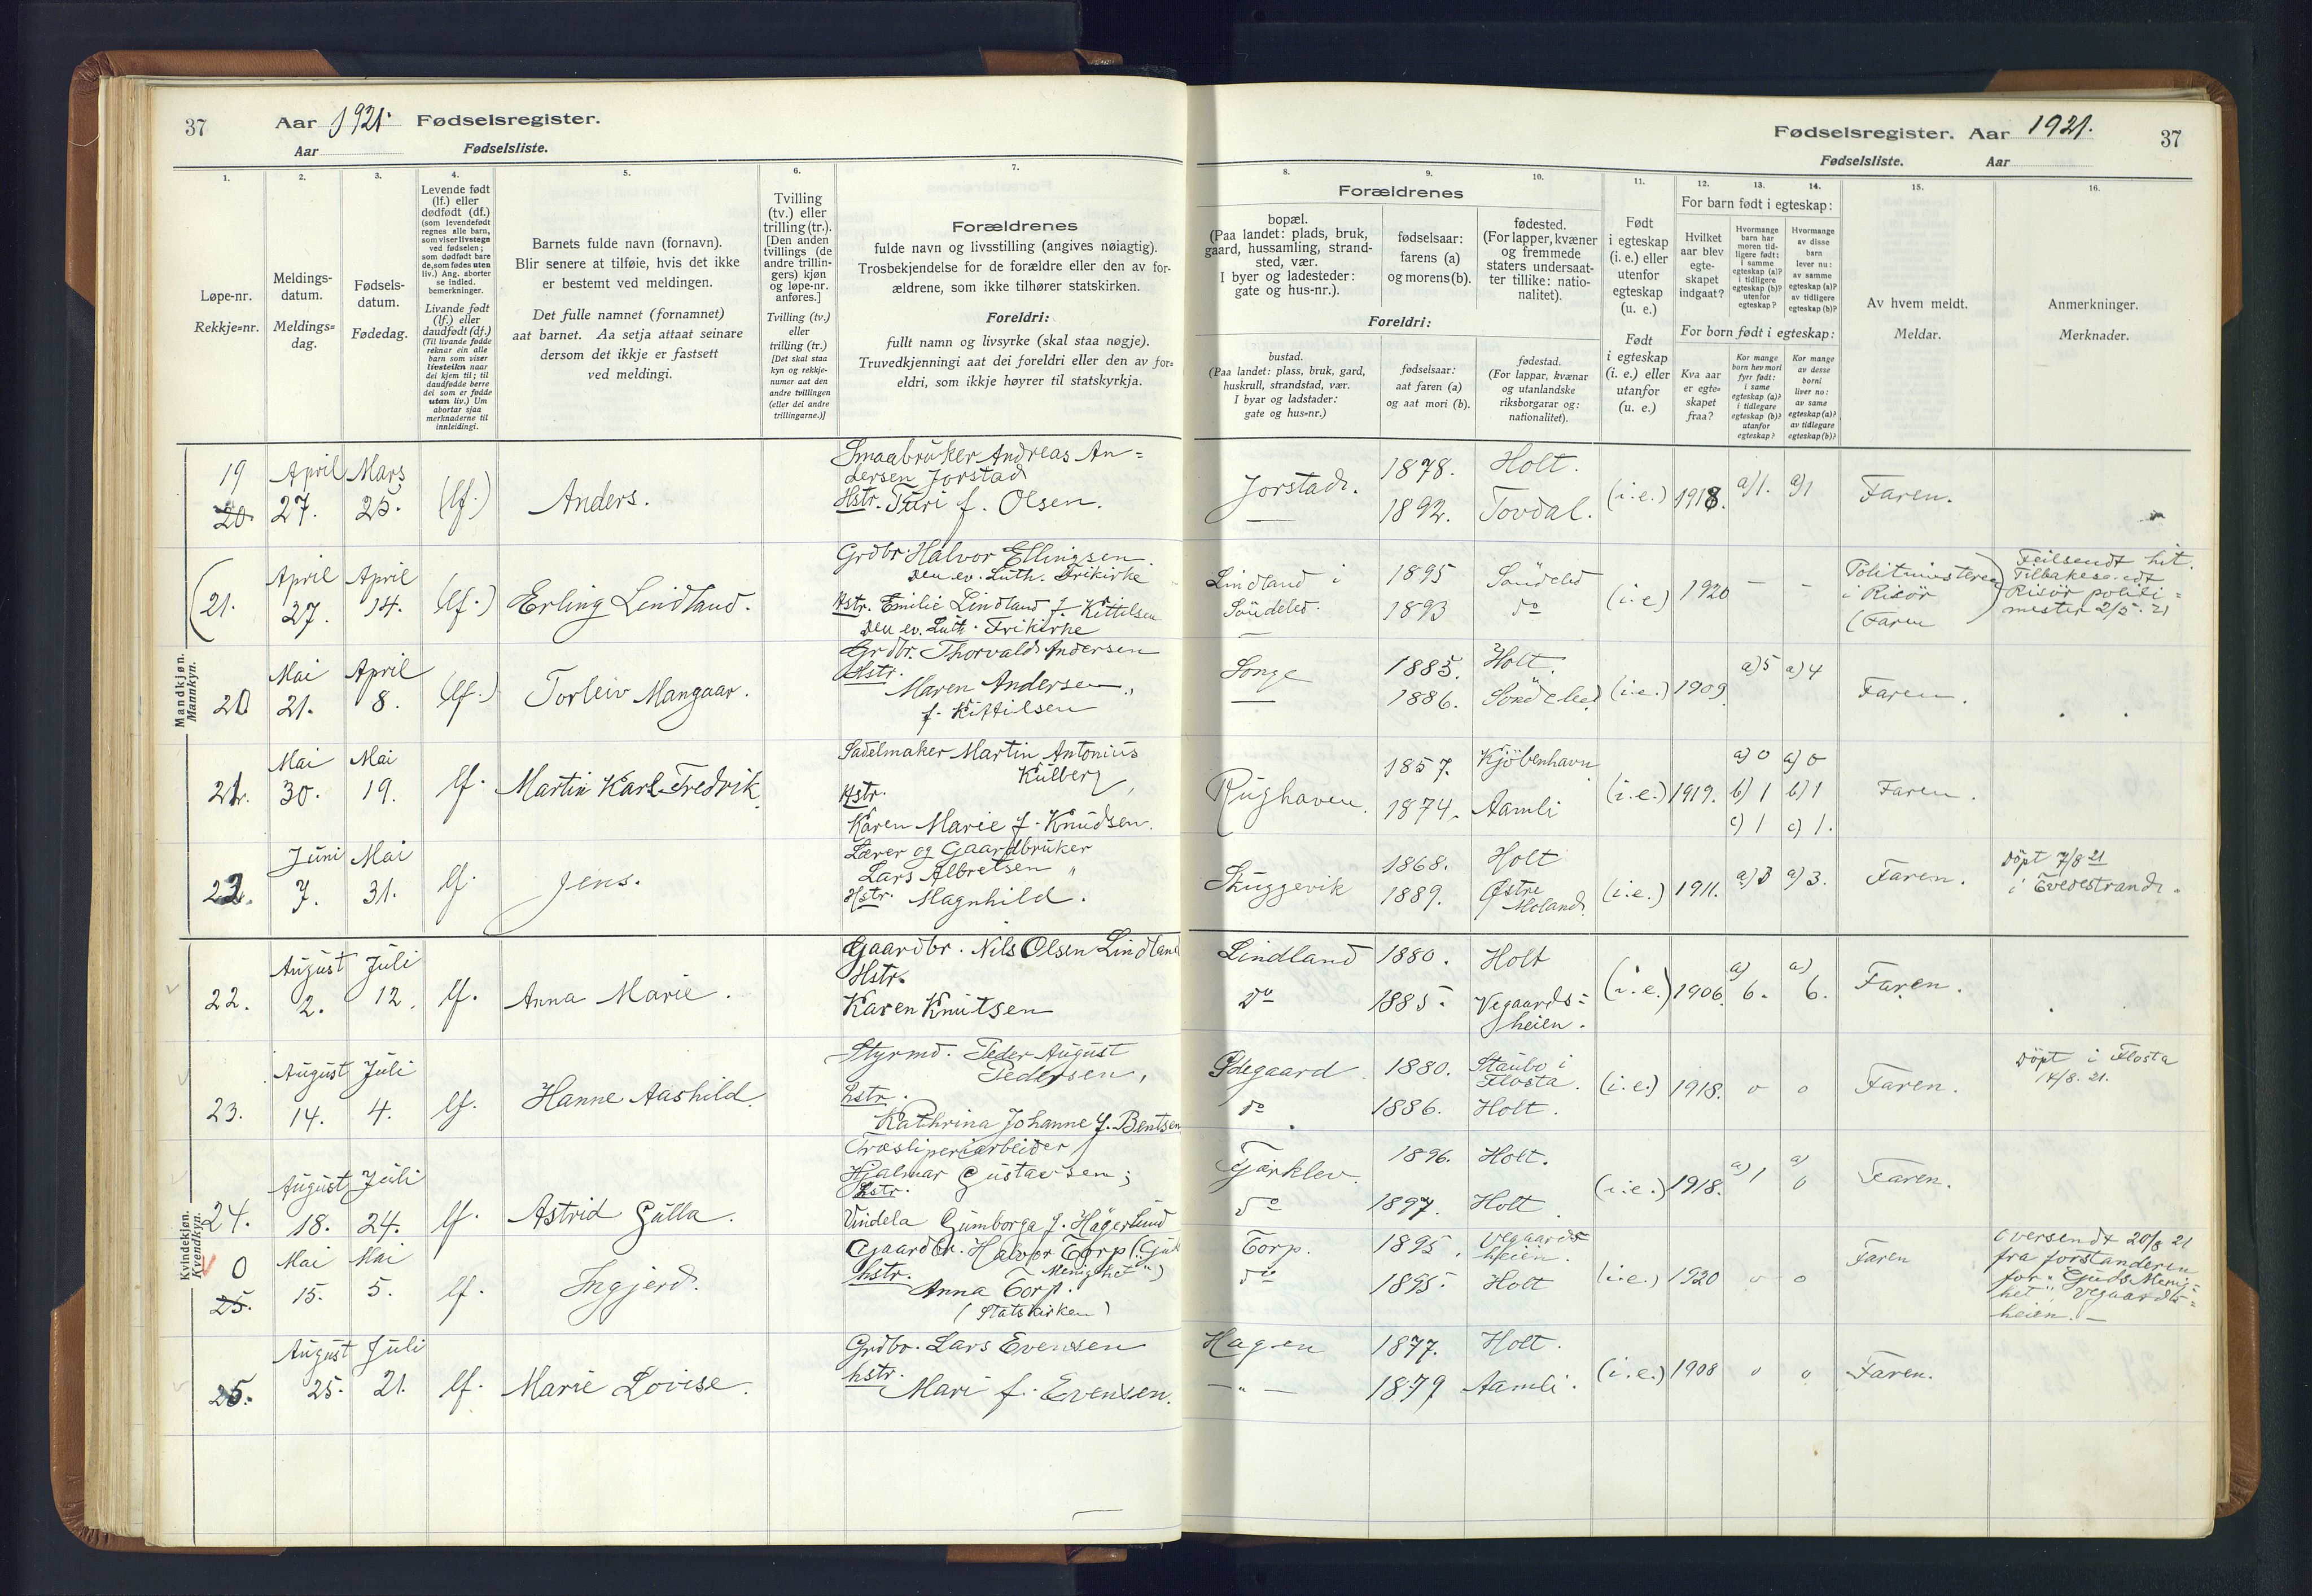 37 Aar 1921. Fødselsregister.
Aar Fødselsliste.
1. 2. 3. 4. 5. 6. 7.
Løpe-nr.
Rekkje=nr.
Meldings-
datum.
Meldings=
dag.
Fødsels-
datum.
Fødedag.
Levende født
(lf.) eller
dødfødt (df.)
(som levendefødt
regnes alle barn,
som viser livstegn
ved fødselen;
som dødfødt bare
de, som fødes uten
liv.) Ang. aborter
se indled.
bemerkninger.
Livande født
(lf.) eller
daudfødt (df.)
(Til livande fødde
reknar ein alle
barn som viser
livsteikn naar
dei kjem til; til
daudfødde berre
dei som er fødde
utan liv.) Um
abortar sjaa
merknaderne til
innleidingi.
Barnets fulde navn (fornavn).
Blir senere at tilføie, hvis det ikke
er bestemt ved meldingen.
Det fulle namnet (fornamnet)
aat barnet. Aa setja attaat seinare
dersom det ikkje er fastsett
ved meldingi.
Tvilling
(tv.) eller
trilling (tr.).
[Den anden
tvillings (de
andre trillin-
gers) kjøn
og løpe-nr.
anføres.]
Tvilling (tv.)
eller
trilling (tr.)
[Det skal staa
kyn og rekkje-
numer aat den
andre tvillingen
(eller dei andre
trillingarne.)]
Forældrenes
fulde navn og livsstilling (angives nøiagtig).
Trosbekjendelse for de forældre eller den av for-
ældrene, som ikke tilhører statskirken.
Foreldri:
fullt namn og livsyrke (skal staa nøgje).
Truvedkjenningi aat dei foreldri eller den av for=
eldri, som ikkje høyrer til statskyrkja.
Mandkjøn.
Mannkyn.
19 April Mars
20. 27. 25. (lf.) Anders.
Smaabruker Andreas An=
dersen Jorstad
Hstr. Turi f. Olsen.
21. April 27. April 14. (lf.) Erling Lindland.
Grdbr. Halvor Ellingsen
Den ev. Luth. Frikirke
Hstr. Emilie Lindland f. Kittilsen
Den ev. Luth. Frikirke
Mai 21. April 8. (lf.) Torleiv Mangaar.
Grdbr. Thorvald Andersen
Hstr.
Maren Andersen,
f. Kittilsen
Mai 30. Mai 19. lf. Martin Karl Fredrik
Sadelmaker Martin Antonius
Kulberg,
Hstr.
Karen Marie f. Knudsen.
Juni 7. Mai 31. lf. Jens.
Lærer og Gaardbruker
Lars Albretsen
Hstr. Magnhild.
Kvindekjøn.
Kvendkyn.
22. August 2. Juli 12. lf. Anna Marie.
Gaardbr. Nils Olsen Lindland
Hstr.
Karen Knutsen
23. August 14. Juli 4. lf. Hanne Aashild
Styrmd. Peder August
Pedersen,
hstr.
Kathrina Johanne f. Bentsen
24. August 18. Juli 24. lf. Astrid Gulla.
Træsliperiarbeider
Hjalmar Gustavsen;
hstr.
Vindela Gumborga f. Hägerlund
0 Mai Mai
25. 15. 5. lf. Ingjerd.
Gaardbr. Halvor Torp ("Guds
Menighet")
hstr.
Anna Torp.
(Statskirken)
25. August 25. Juli 21. lf. Marie Lovise.
Grdbr. Lars Evensen
hstr.
Mari f. Evensen.
Fødselsregister. Aar 1921. 37
Fødselsliste. Aar
8. 9. 10. 11. 12. 13. 14. 15. 16.
Forældrenes
bopæl.
(Paa landet: plads, bruk,
gaard, hussamling, strand-
sted, vær.
I byer og ladesteder:
gate og hus-nr.).
fødselsaar:
farens (a)
og morens (b).
fødested.
(For lapper, kvæner
og fremmede
staters undersaat-
ter tillike: natio-
nalitet).
Foreldri:
bustad.
(Paa landet: plass, bruk, gard,
huskrull, strandstad, vær.
I byar og ladstader:
gate og hus=nr.)
fødselsaar:
aat faren (a)
og aat mori (b).
fødestad.
(For lappar, kvænar
og utanlandske
riksborgarar og:
nationalitet).
Født
i egteskap
(i. e.) eller
utenfor
egteskap
(u. e.)
Født
i egteskap
(i. e.) eller
utanfor
egteskap
(u. e.)
For barn født i egteskap:
Hvilket
aar blev
egte-
skapet
indgaat?
Hvormange
barn har
moren tid-
ligere født:
i samme
egteskap (a)?
i tidligere
egteskap (b)?
utenfor
egteskap?
Hvormange
av disse
barn
lever nu:
av samme
egteskap (a)?
av tidligere
egteskap (b)?
For born født i egteskap:
Kva aar
er egte=
skapet
fraa?
Kor mange
born hev mori
fyrr født:
i same
egteskap (a)?
i tidlegare
egteskap (b)?
utanfor
egteskap?
Kor mange
av desse
borni
liver no:
av same
egteskap (a)?
av tidlegare
egteskap (b)?
Av hvem meldt.
Meldar.
Anmerkninger.
Merknader.
Jorstad. 1878. Holt.
1892. Tovdal. (i.e.) 1918. a)1. a)1 Faren.
Lindland i 1895 Söndeled
Söndeled. 1893 do (i.e) 1920 – –
Politimesteren
i Risör
(Faren
Feilsendt hit.
Tilbakesendt
Risör politi=
mester 2/5. 21
Songe 1883. Holt.
1886. Söndeled (i.e.) 1909 a)5 a)4 Faren.
Rughaven. 1857. Kjöbenhavn
1874. Aamli (i.e.) 1919. a)0 a)0
b)1 b)1 Faren.
c)1 c)1.
Skuggevik 1868. Holt
1889. Østre
Moland. (i.e.) 1911. a)3 a)3. Faren.
Döpt 7/8 21
i Tvedestrand.
Lindland 1880. Holt
Do 1885. Vegaards=
heien. (i.e.) 1906. a) 6. a) 6. Faren.
Ødegaard 1880. Staubo i
Flosta.
do 1886. Holt. (i.e.) 1918. o o Faren.
Döpt i Flosta
14/8. 21.
Fjærklev. 1896. Holt.
do 1897. Holt. (i.e.) 1918. a) 1 a) 0 Faren.
Torp. 1895. Vegaards
heien.
do 1895. Holt (i.e.) 1920 o o Faren
Oversendt 20/8 21
fra forstanderen
for "Guds Menig=
het", Vegaards=
heien. –
Hagen 1877. Holt.
– „ – 1879 Aamli. (i.e.) 1908 o o Faren.